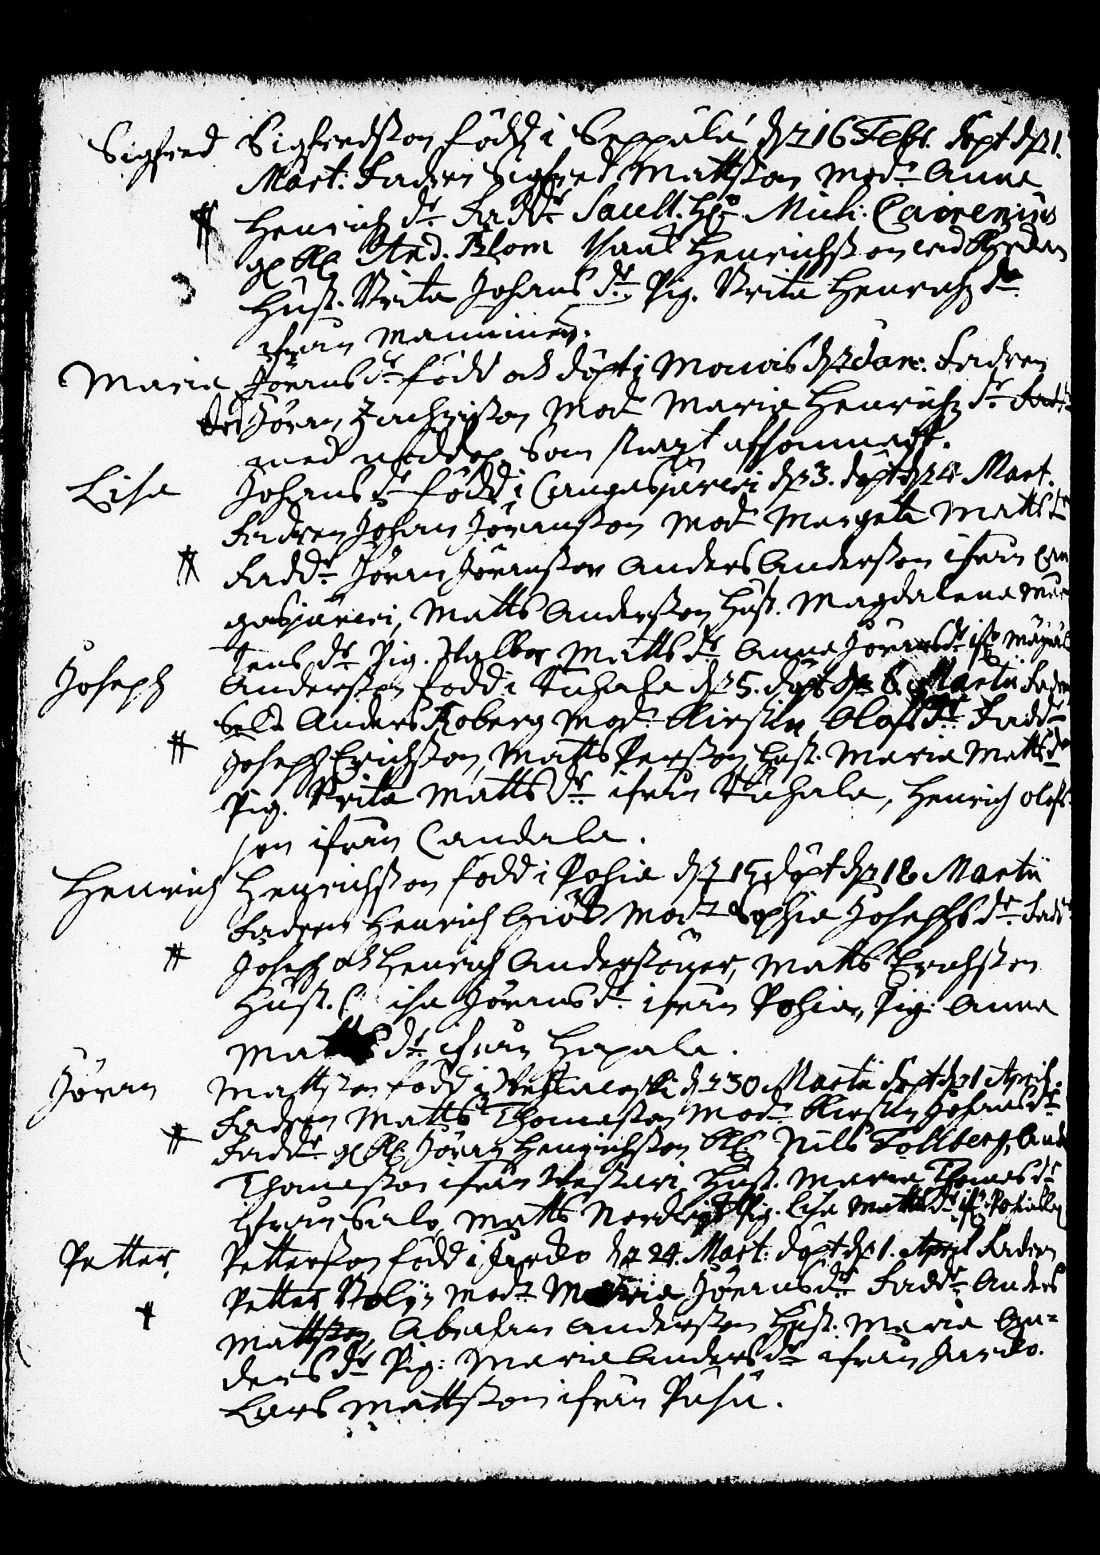 Sigfred Sigfredsson född i Seppälä d 16 Febr. döpt d 1.
Mart: Fadren Sigfred Mattsson Mod: Anna
Henrichs dr Fadd: Sacell. H: Mich: Cajrenius
And. Blom Henrichsson
Hust. Brita Johans dr. Pig. Brita Henrichs dr
ifrån Manninen.
Maria Jörans dr född och döpt i d Jan: Fadren
Jöran Zachrisson Mod: Maria Henrichs dr
med som strax afsomnade.
Lisa Johans dr född i Cangasjärvi d 3. döpt d 4 Mart.
Fadren Johan Jöransson Mod: Margeta Matts dr
Fadd: Jöran Jöransson Anders Andersson ifrån Can
gasjärvi, Matts Andersson, Hust. Magdalena Mår
tens dr Pig. Walbor Matts dr Anna Jörans dr if:
Joseph Andersson född i Tuhala d 5. döpt d 6. Martii Fadren
Anders Roberg Mod: Kirstin Olofs dr Fadd:
Joseph Erichsson, Matts Persson, Hust. Maria Matts dr
Pig. Brita Matts dr ifrån Tuhala, Henrich Olofs-
son ifrån Candala.
Henrich Henrichsson född i Pohia d 15 döpt d 18 Martii
Fadren Henrich Giös Mod: Sophia Josephs dr Fadd:
Joseph och Henrich Anderssöner, Matts Erichsson
Hust. Lisa Jörans dr ifrån Pohia, Pig: Anna
Matts dr ifrån Hapala.
Jöran Mattsson född i d 30 Martii döpt d 1 April.
Fadren Matts Thomasson Mod: Kirstin Johans dr
Fadd: Jöran Henrichsson Nils Tollberg, And
Thomasson ifrån Hust. Maria Thomas dr
ifrån Salo, Matts Pig. Lisa Matts dr if:
Petter Pettersson född i Jardo d 24. Mart: döpt d 1. April Fadren
Petter Mod: Maria Jörans dr Fadd: Anders
Mattsson, Abraham Andersson Hust: Maria An=
ders dr Pig: Maria Anders dr ifrån Jardo.
Lars Mattsson ifrån Puhu.